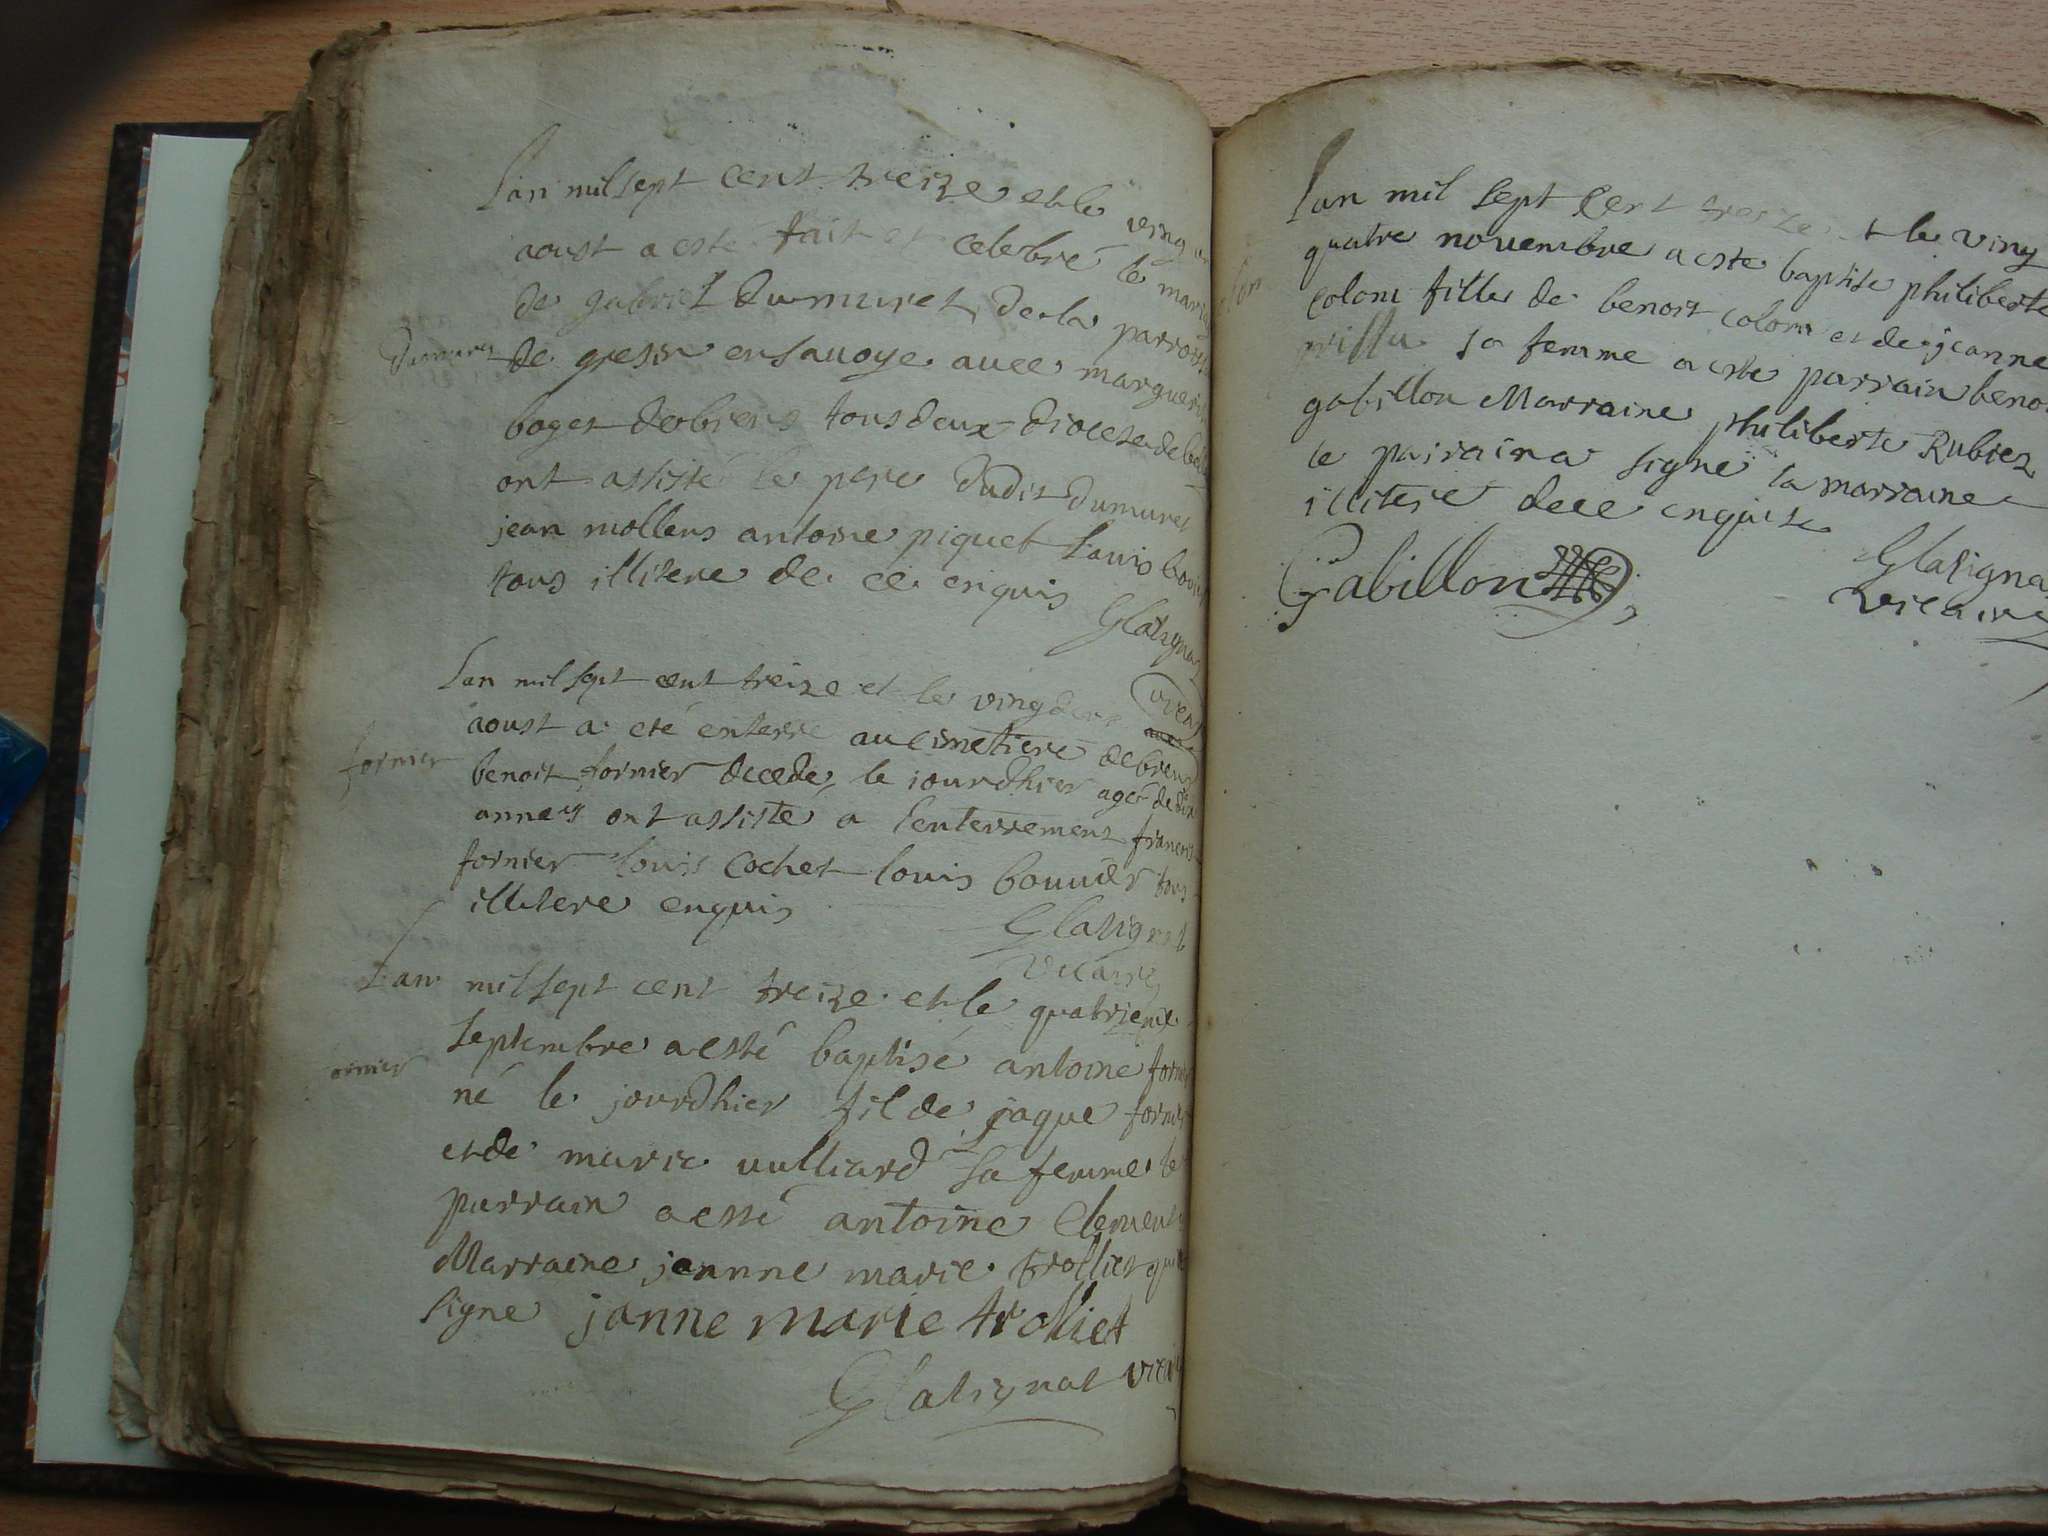 Lan mil sept cent treize et le ving un
aoust a esté fait et celebré le mariag
de gabriel Dumuret de la parroisse
Dumuret
de gresin en savoye avec marguerit
boget de briens tous deux diocese de belley
ont assisté le pere dudit Dumuret
jean mollens antoine piquet Louis bouvier
tous illitere de ce enquis
Glatignat
Lan mil sept cent treize et le ving deux
aoust a eté enterré au cimetiere de briens
fornier
benoit fornier decede le jourdhier agé de dix
annees ont assisté a lenterrement francois
fornier louis Cochet louis bouvier tous
illitere enquis
Glatignat
vicaire
Lan mil sept cent treize et le quatrieme
septembre a esté baptisé antoine fornier
ornier
né le jourdhier fil de jaque fornier
et de marie vulliard sa femme le
parrain a esté antoine Clement
Marraine jeanne marie trolliet qui
signe janne marie trolliet
Glatignat vicaire
Lan mil sept cent treize et le ving
quatre novembre a este baptise philiberte
Colom fille de benoit colom et de jeanne
sa femme a este parrain benoit
gabillon Marraine philiberte Rubiez
le parrain a signé la marraine
illitere de ce enquise
Gabillon
Glatignat
vicaire